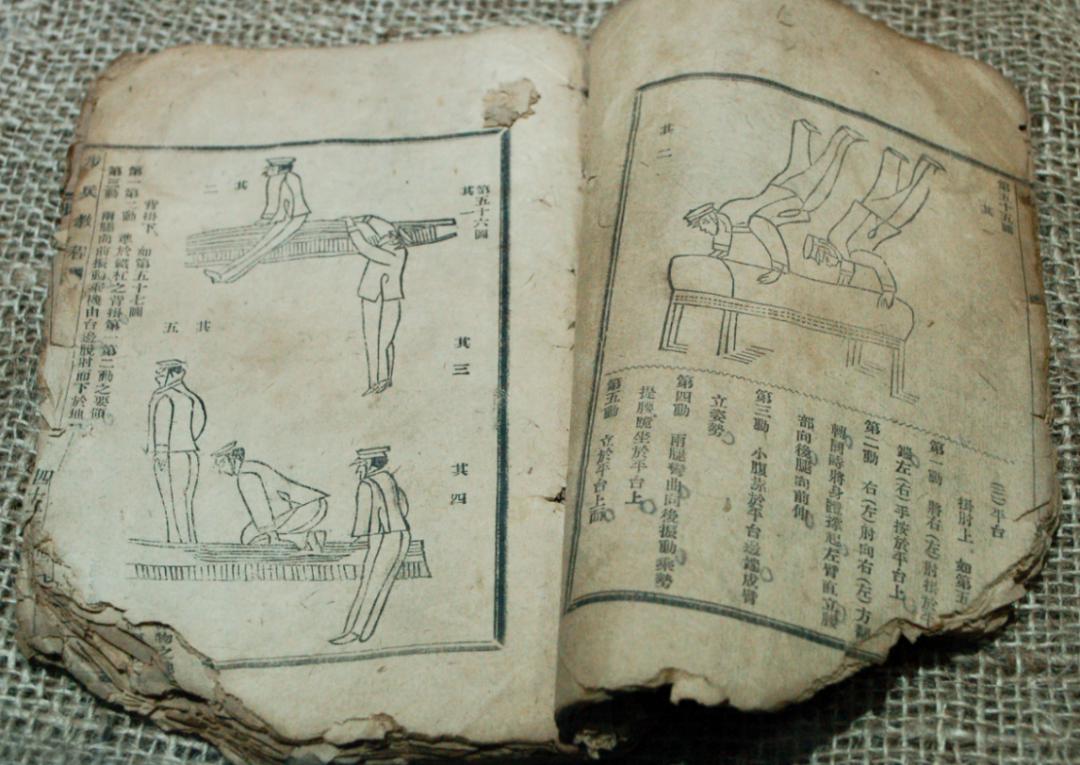 第五十五圖
其一
其二
(三)平台
掛肘上、如第五
第一動 將右(左)肘掛於平
左(右)手按於平台上
第二動 右(左)肘向右(左)方翻
同時將身體撐起左臂直立
部向後腿向前伸
第三動 小腹靠於平台邊成臂
立姿勢
第四動 兩腿彎曲向後振動乘勢
提腰跪坐於平台上
第五動 立於平台上面
第五十六圖
其一
其二
其三
其四
其五
背掛下、如第五十七圖
第一第二動 準於杠之背掛第一第二動之要領
第三動 兩腿向前振動乘機由台邊脫肘而下於地
步兵教
四十
物之